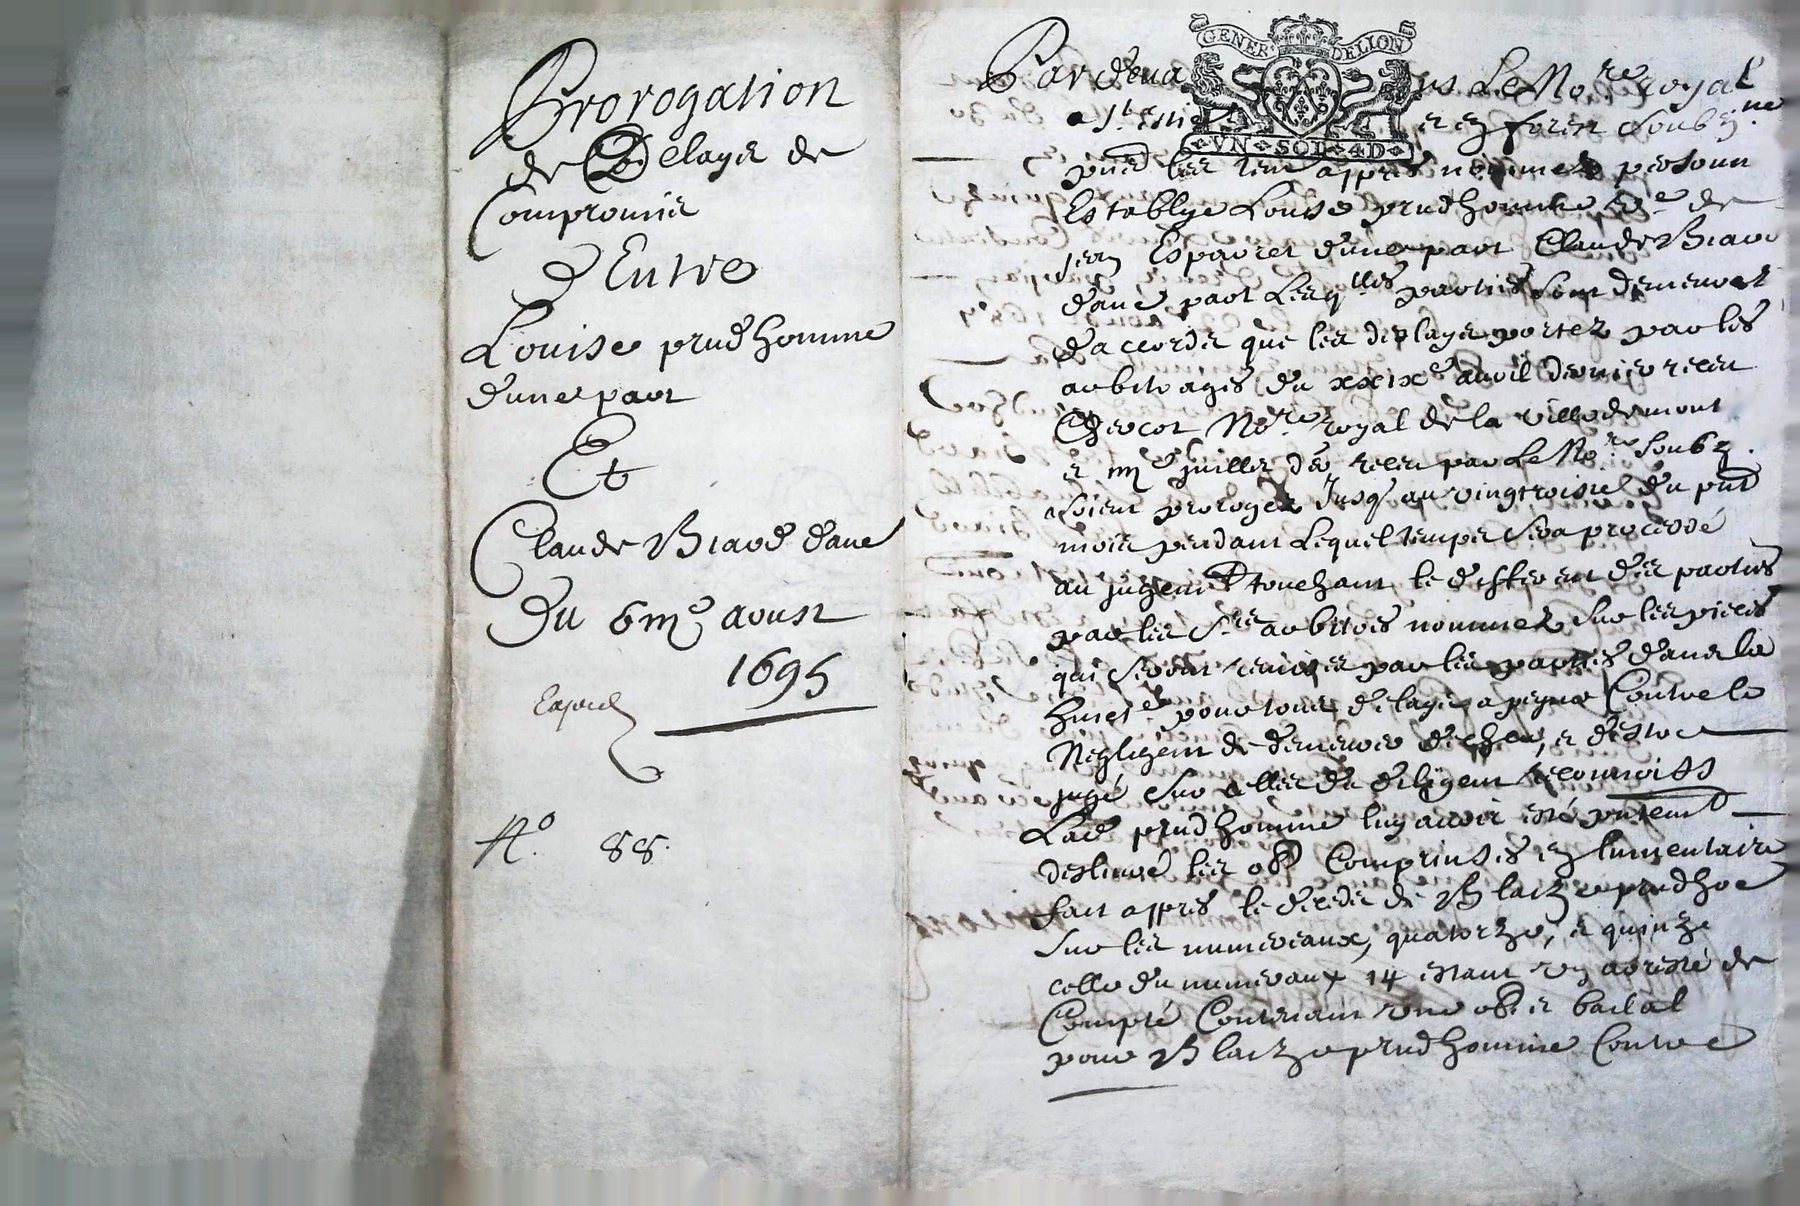 Prorogation
de Delays de
Compromis
D'Entre
Louise prudhomme
d'une part
Et
Claude Biard d'aue
Du 6me aoust
1695
No. 88.
GENER DELION
VN SOL 4D
Par deua us Le No.re royal
a St Estie e en forest Soubz.ne
pnt les tem appres nommez personn
Establye Louise prudhomme Ve de
jean Espauret d'une part Claude Biard
d'aue part Lesqlles parties sont demeures
d'accordz que les delays portez par les
arbitrages du xxixe auril dernier receu
Chercot No.re royal de la ville demont
e iiije juillet der receu par Le No.re Soubz.
soient prorogez Jusq au vingtroisie du pnt
mois pendant Lequel temps sera processé
au jugemt touchant le different des parties
par les Srs arbitres nommez sur les pieces
qui seront remises par les parties dans la
pour tous delays a peyne Contre le
Negligent de demeurer descheu, e d'estre
jugé sur celles du diligent recognoiss
Lad prudhomme luy auoir esté pntemt
desliuré les ob Comprinses en Linuentaire
fait appres le deceds de Blaize prudhoe
sur les numeraux, quatorze, e quinze
celle du numeraux 14 estant un arresté de
Compte Contenant une ob e bail al
pour Blaize prudhomme Contre